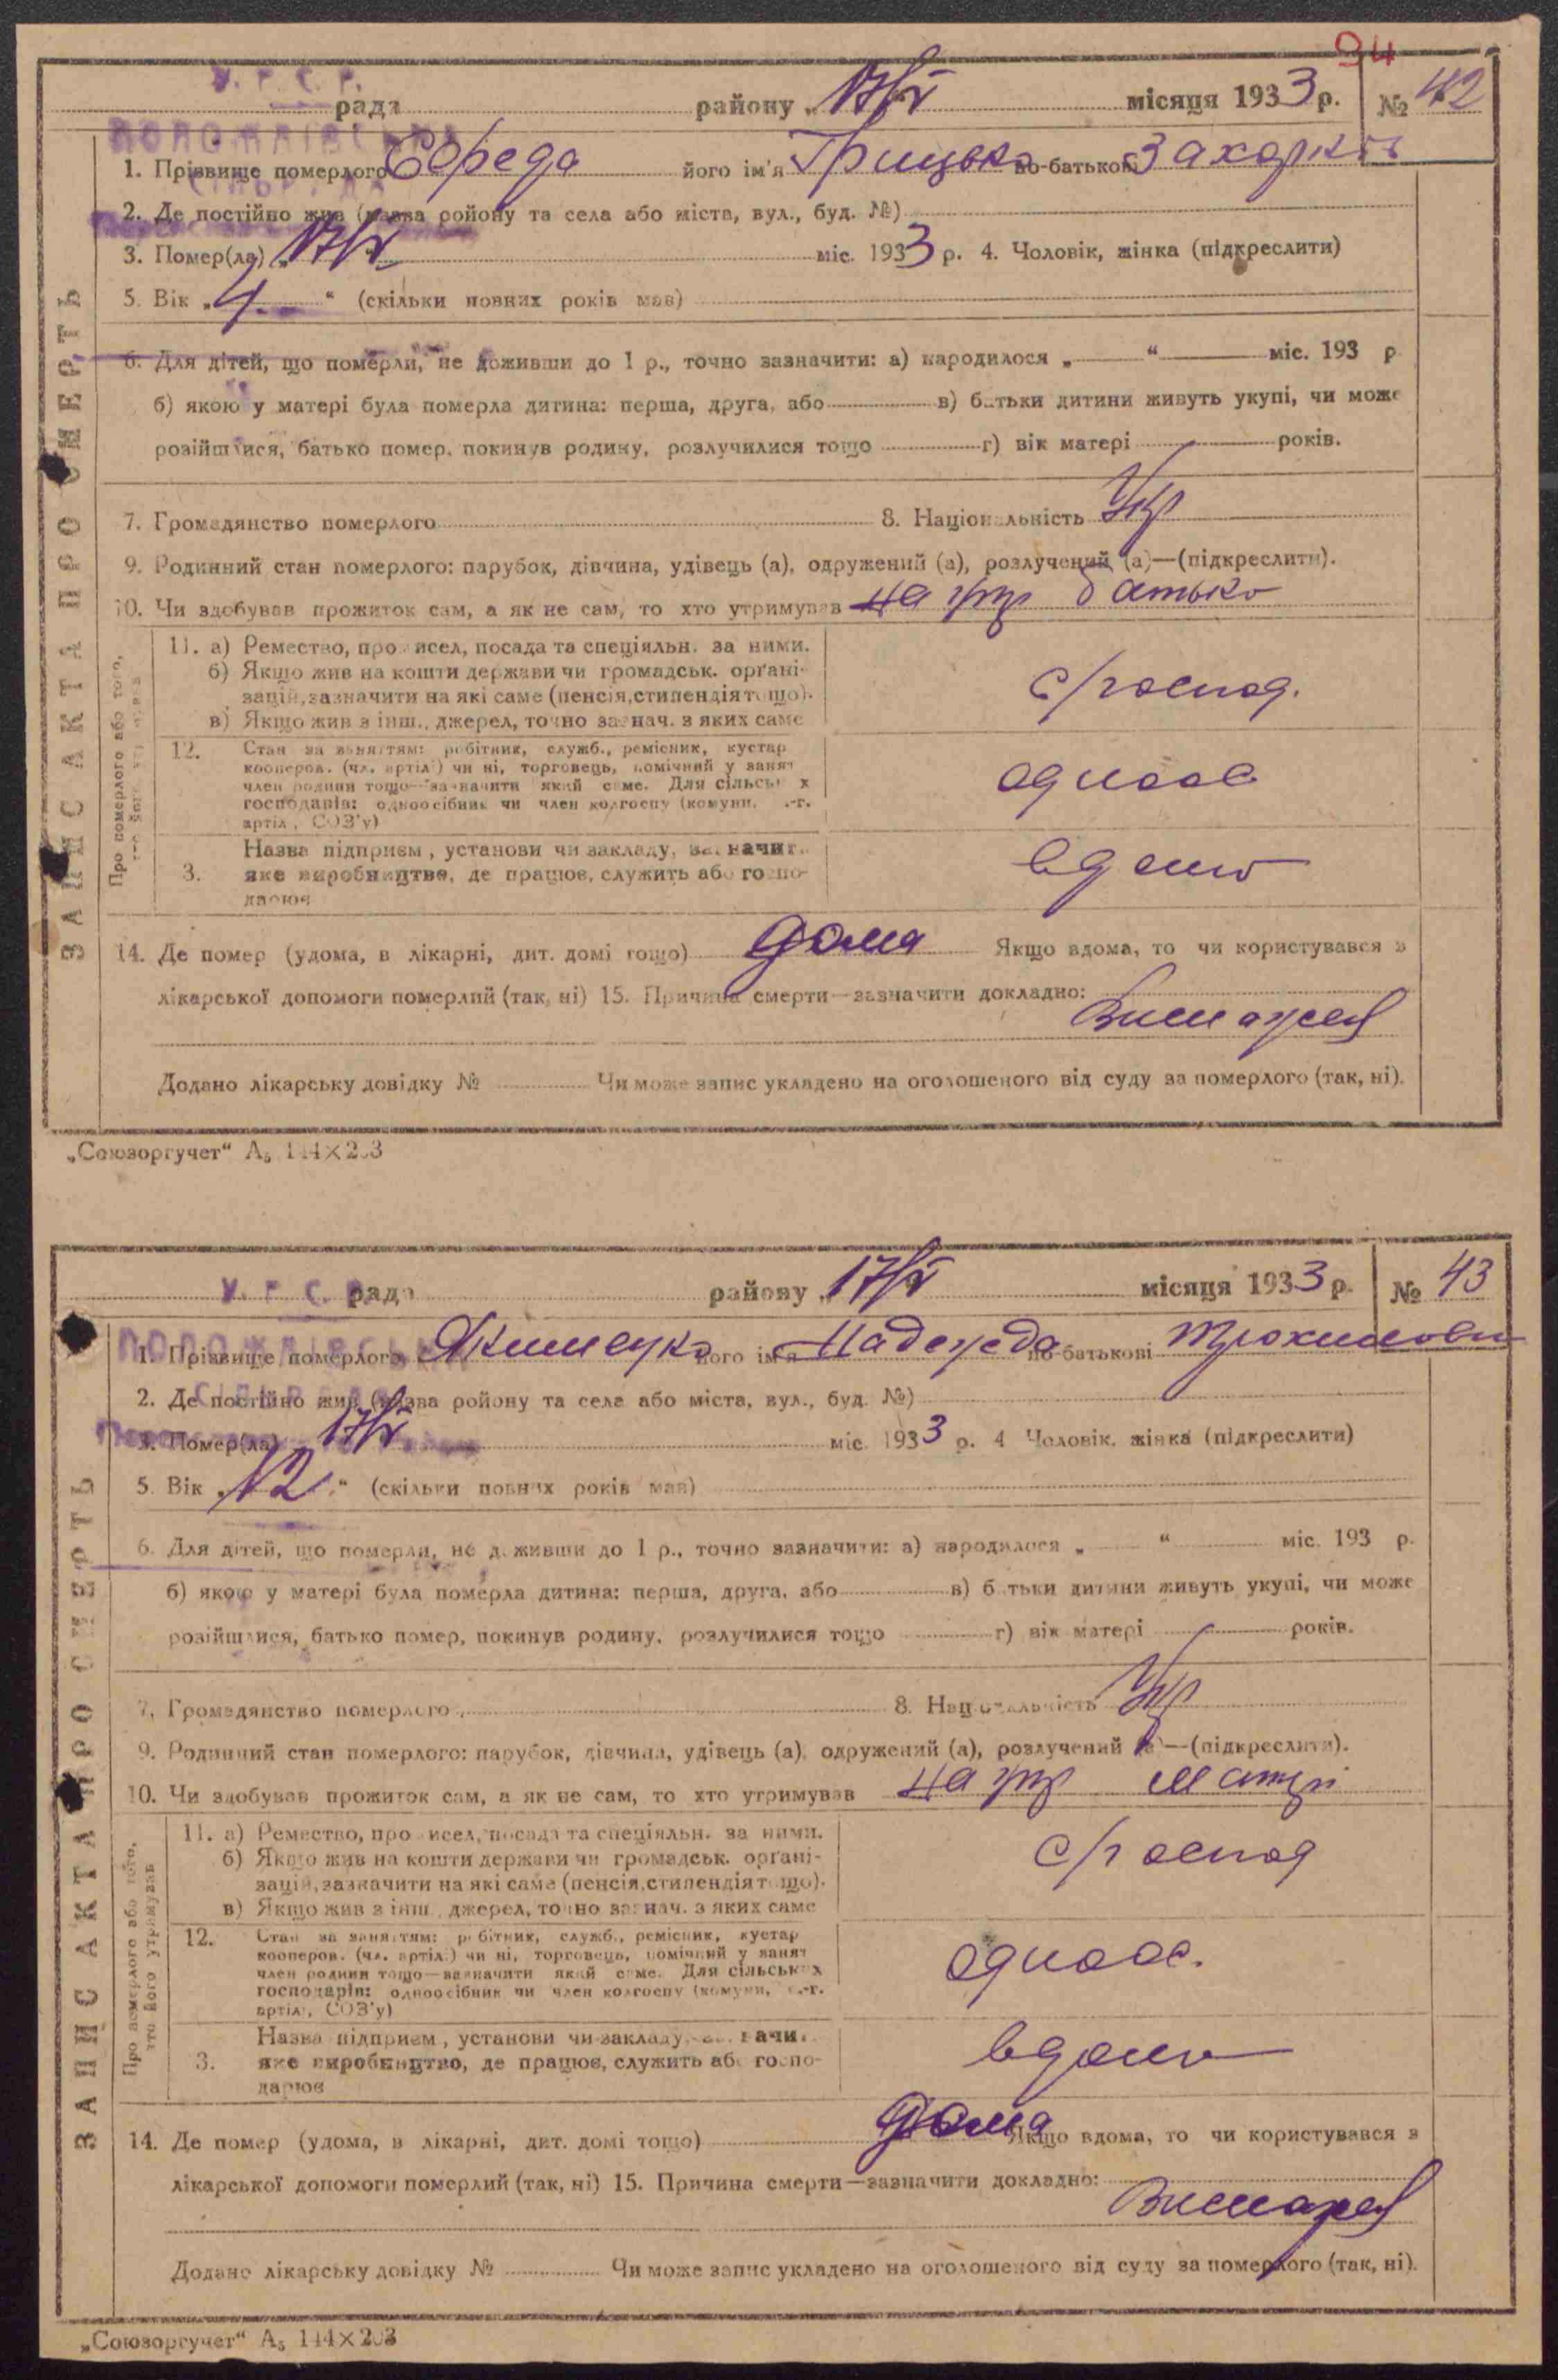 94
У. Р. С. Р.
рада району „ 17/V місяця 1933 р. № 42
1. Прізвище померлого Середа його ім'я Грицько по-батькові Захарків
2. Де постійно жив (назва ройону та села або міста, вул., буд. №)
3. Помер(ла) „ 17/V міс. 1933 р. 4. Чоловік, жінка (підкреслити)
5. Вік „ 4. “ (скільки повних років мав)
6. Для дітей, що померли, не доживши до 1 р., точно зазначити: а) народилося „ “ міс. 193 р.
б) якою у матері була померла дитина: перша, друга, або в) батьки дитини живуть укупі, чи може
розійшлися, батько помер, покинув родину, розлучилися тощо г) вік матері років.
7. Громадянство померлого 8. Національність Укр
9. Родинний стан померлого: парубок, дівчина, удівець (а), одружений (а), розлучений (а)—(підкреслити).
10. Чи здобував прожиток сам, а як не сам, то хто утримував на утр батько
11. а) Ремество, промисел, посада та спеціяльн. за ними.
б) Якщо жив на кошти держави чи громадськ. органі-
зацій, зазначити на які саме (пенсія, стипендія тощо).
в) Якщо жив з інш., джерел, точно зазнач. з яких саме
с/господ.
12. Стан за заняттям: робітник, служб., ремісник, кустар
кооперов. (чл. артілі) чи ні, торговець, помічний у занят
член родини тощо—зазначити який саме. Для сільських
господарів: одноосібник чи член колгоспу (комуни, с.-г.
артіл., СОЗ'у)
одноос
3. Назва підприєм., установи чи закладу, зазначит.
яке виробництво, де працює, служить або госпо-
дарює
вдома
Про померлого або того,
хто його утримував
14. Де помер (удома, в лікарні, дит. домі тощо) дома Якщо вдома, то чи користувався з
лікарської допомоги померлий (так, ні) 15. Причина смерти—зазначити докладно:
Додано лікарську довідку № Чи може запис укладено на оголошеного від суду за померлого (так, ні).
ЗАПИС АКТА ПРО СМЕРТЬ
„Союзоргучет“ А5 144×203
У. Р. С. Р.
рада району „ 17/V місяця 1933 р. № 43
1. Прізвище померлого його ім'я Надежда по-батькові
2. Де постійно жив (назва ройону та села або міста, вул., буд. №)
3. Помер(ла) 17/V міс. 1933 р. 4 Чоловік, жінка (підкреслити)
5. Вік „ 12. “ (скільки повних років мав)
6. Для дітей, що померли, не доживши до 1 р., точно зазначити: а) народилося „ “ міс. 193 р.
б) якою у матері була померла дитина: перша, друга, або в) батьки дитини живуть укупі, чи може
розійшлися, батько помер, покинув родину, розлучилися тощо г) вік матері років.
7. Громадянство померлого 8. Національність Укр
9. Родинний стан померлого: парубок, дівчина, удівець (а), одружений (а), розлучений (а)—(підкреслити).
10. Чи здобував прожиток сам, а як не сам, то хто утримував на утр матері
11. а) Ремество, промисел, посада та спеціяльн. за ними.
б) Якщо жив на кошти держави чи громадськ. органі-
зацій, зазначити на які саме (пенсія, стипендія тощо).
в) Якщо жив з інш., джерел, точно зазнач. з яких саме
с/господ
12. Стан за заняттям: робітник, служб., ремісник, кустар
кооперов. (чл. артілі) чи ні, торговець, помічний у занят
член родини тощо—зазначити який саме. Для сільських
господарів: одноосібник чи член колгоспу (комуни, с.-г.
артіл., СОЗ'у)
одноос.
3. Назва підприєм., установи чи закладу, зазначит.
яке виробництво, де працює, служить або госпо-
дарює
вдома
Про померлого або того,
хто його утримував
14. Де помер (удома, в лікарні, дит. домі тощо) дома Якщо вдома, то чи користувався з
лікарської допомоги померлий (так, ні) 15. Причина смерти—зазначити докладно:
Додано лікарську довідку № Чи може запис укладено на оголошеного від суду за померлого (так, ні).
ЗАПИС АКТА ПРО СМЕРТЬ
„Союзоргучет“ А5 144×203